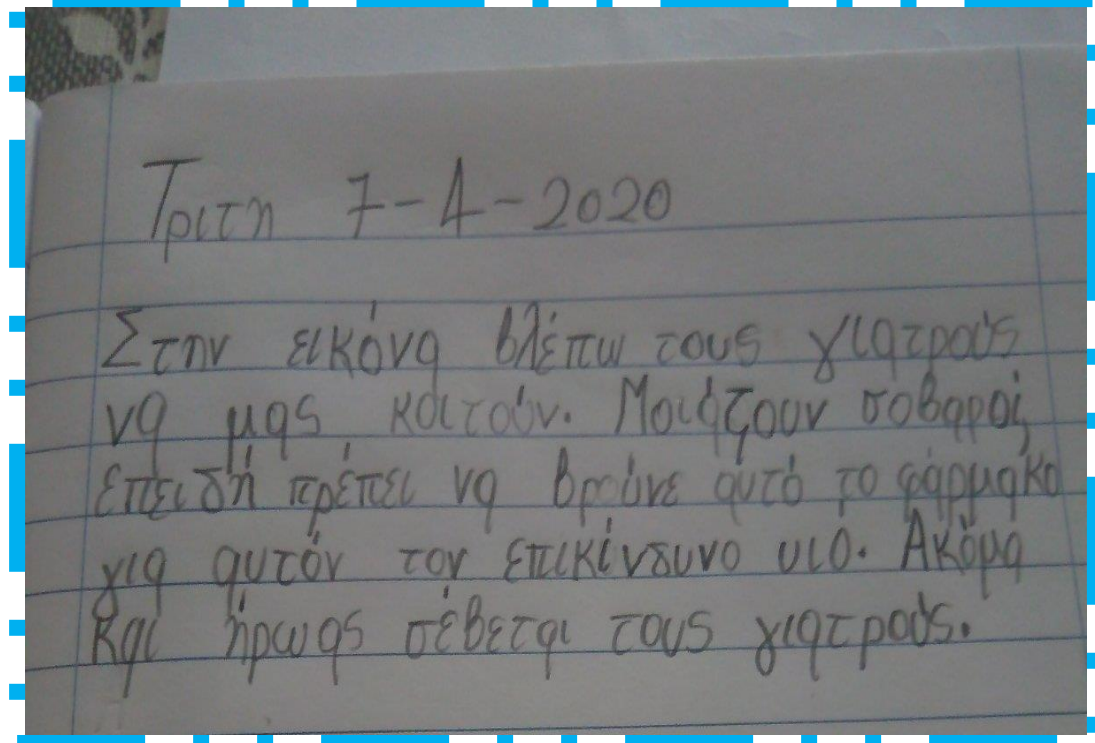 Τριτη 7-4-2020
Στην εικόνα βλέπω τους γιατρούς
να μας κοιτούν. Μοιάζουν σοβαροί
επειδή πρέπει να βρούνε αυτό το φάρμακο
για αυτόν τον επικίνδυνο υιό. Ακόμα
και ήρωας σέβεται τους γιατρούς.